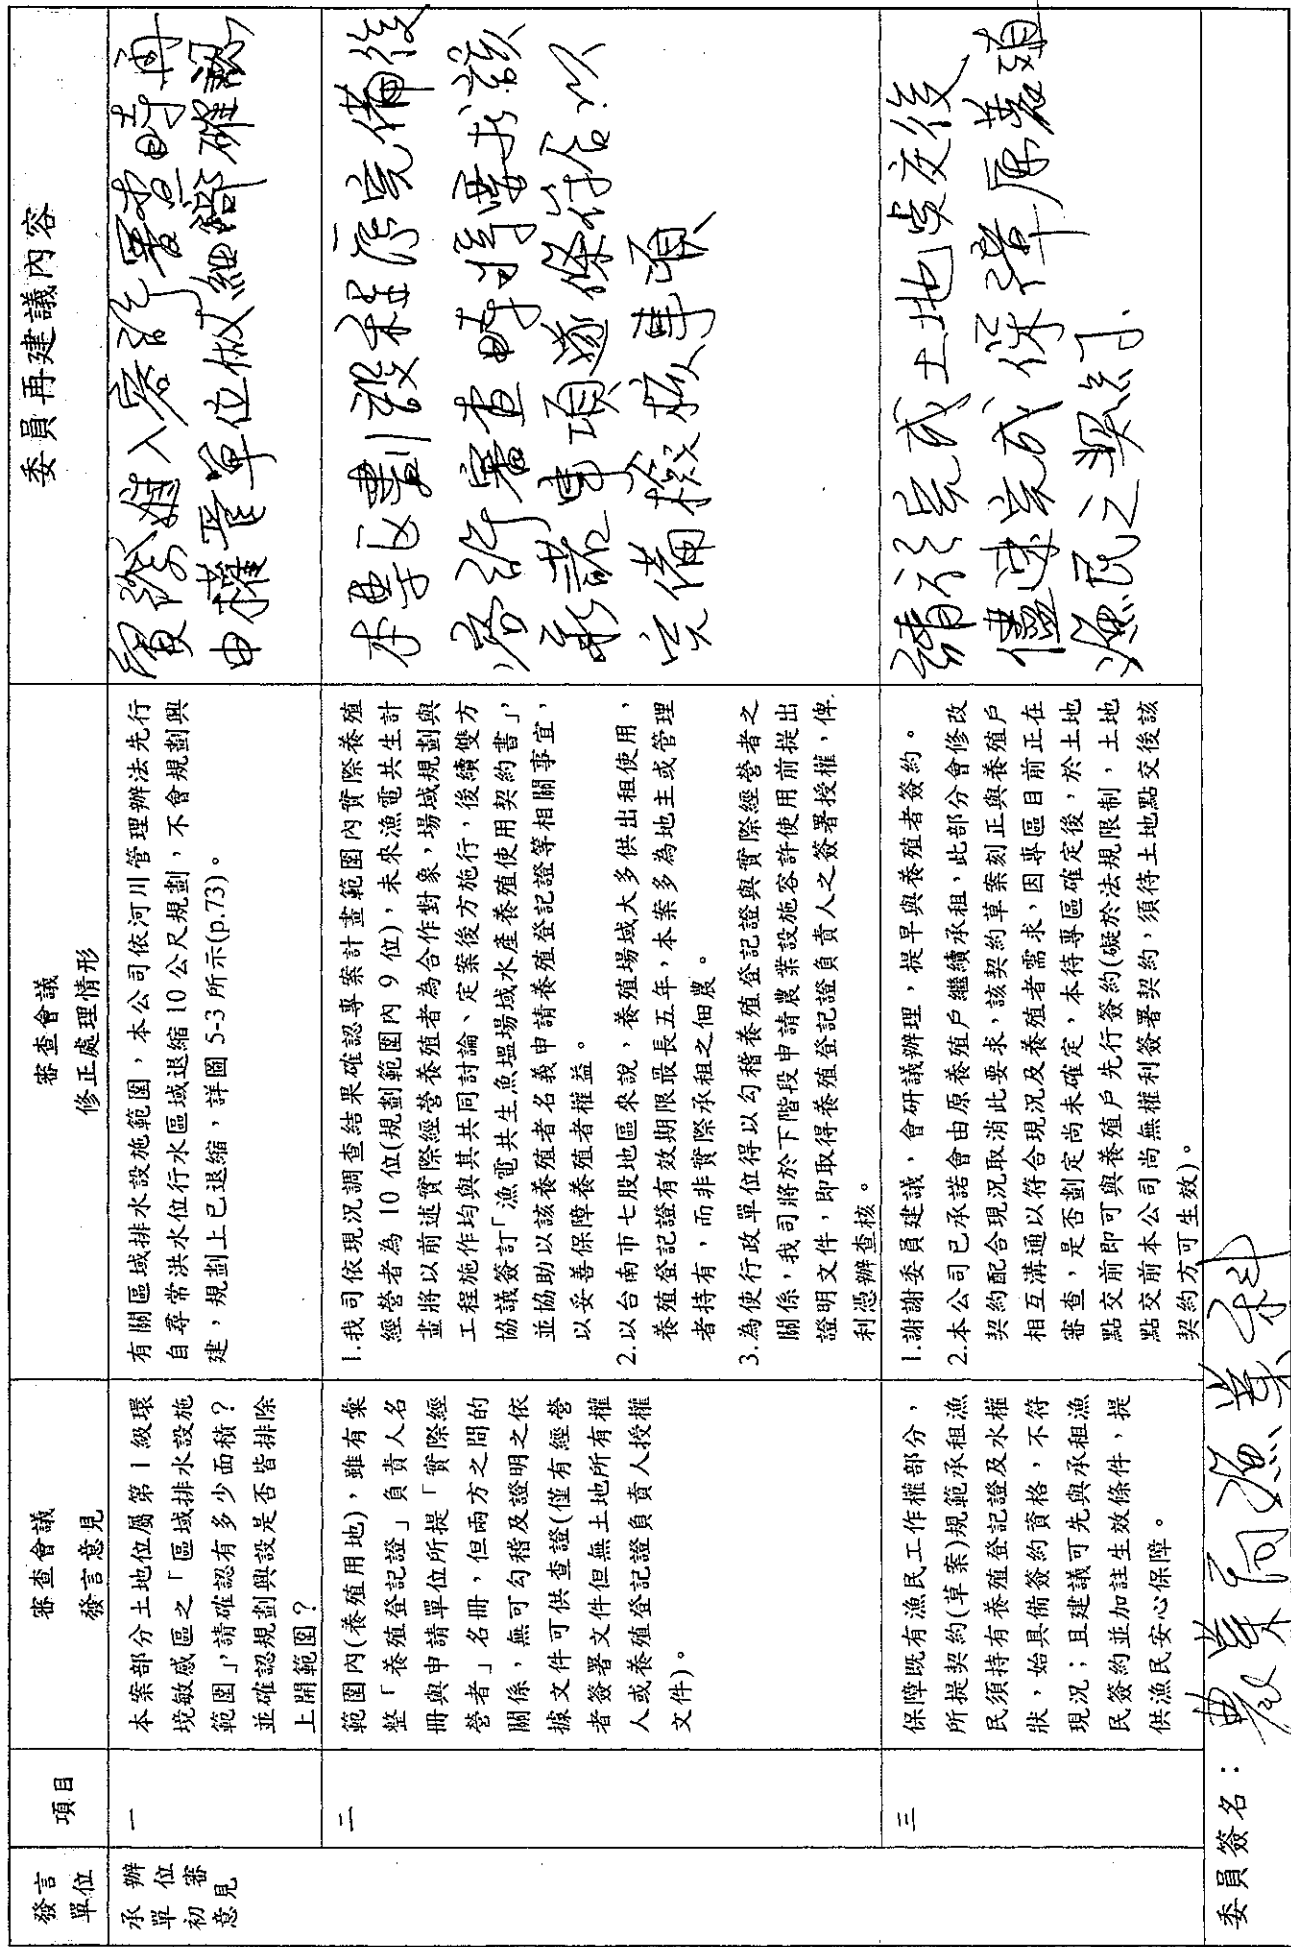 發言
單位
項目
審查會議
發言意見
審查會議
修正處理情形
委員再建議內容
承辦
單位
初審
意見
一
本案部分土地位屬第 1 級環
境敏感區之「區域排水設施
範圍」，請確認有多少面積？
並確認規劃興設是否皆排除
上開範圍？
有關區域排水設施範圍，本公司依河川管理辦法先行
自尋常洪水位行水區域退縮 10 公尺規劃，不會規劃興
建，規劃上已退縮，詳圖 5-3 所示(p.73)。
入容許審查時再
由權管單位做細節確認
二
範圍內(養殖用地)，雖有彙
整「養殖登記證」負責人名
冊與申請單位所提「實際經
營者」名冊，但兩方之間的
關係，無可勾稽及證明之依
據文件可供查證(僅有經營
者簽署文件但無土地所有權
人或養殖登記證負責人授權
文件)。
1.我司依現況調查結果確認專案計畫範圍內實際養殖
經營者為 10 位(規劃範圍內 9 位)，未來漁電共生計
畫將以前述實際經營養殖者為合作對象，場域規劃與
工程施作均與其共同討論、定案後方施行，後續雙方
協議簽訂「漁電共生魚塭場域水產養殖使用契約書」，
並協助以該養殖者名義申請養殖登記證等相關事宜，
以妥善保障養殖者權益。
2.以台南市七股地區來說，養殖場域大多供出租使用，
養殖登記證有效期限最長五年，本案多為地主或管理
者持有，而非實際承租之佃農。
3.為使行政單位得以勾稽養殖登記證與實際經營者之
關係，我司將於下階段申請農業設施容許使用前提出
證明文件，即取得養殖登記證負責人之簽署授權，俾
利憑辦查核。
本專區劃設程序完備後
容許審查時將要求該
承諾事項逐條佐以
完備查核事項
三
保障既有漁民工作權部分，
所提契約(草案)規範承租漁
民須持有養殖登記證及水權
狀，始具備簽約資格，不符
現況；且建議可先與承租漁
民簽約並加註生效條件，提
供漁民安心保障。
1.謝謝委員建議，會研議辦理，提早與養殖者簽約。
2.本公司已承諾會由原養殖戶繼續承租，此部分會修改
契約配合現況取消此要求，該契約草案刻正與養殖戶
相互溝通以符合現況及養殖者需求，因專區目前正在
審查，是否劃定尚未確定，本待專區確定後，於土地
點交前即可與養殖戶先行簽約(礙於法規限制，土地
點交前本公司尚無權利簽署契約，須待土地點交後該
契約方可生效)。
請於完成土地點交後
儘速完成保障原養殖
漁民之契約
委員簽名：農業局漁業科